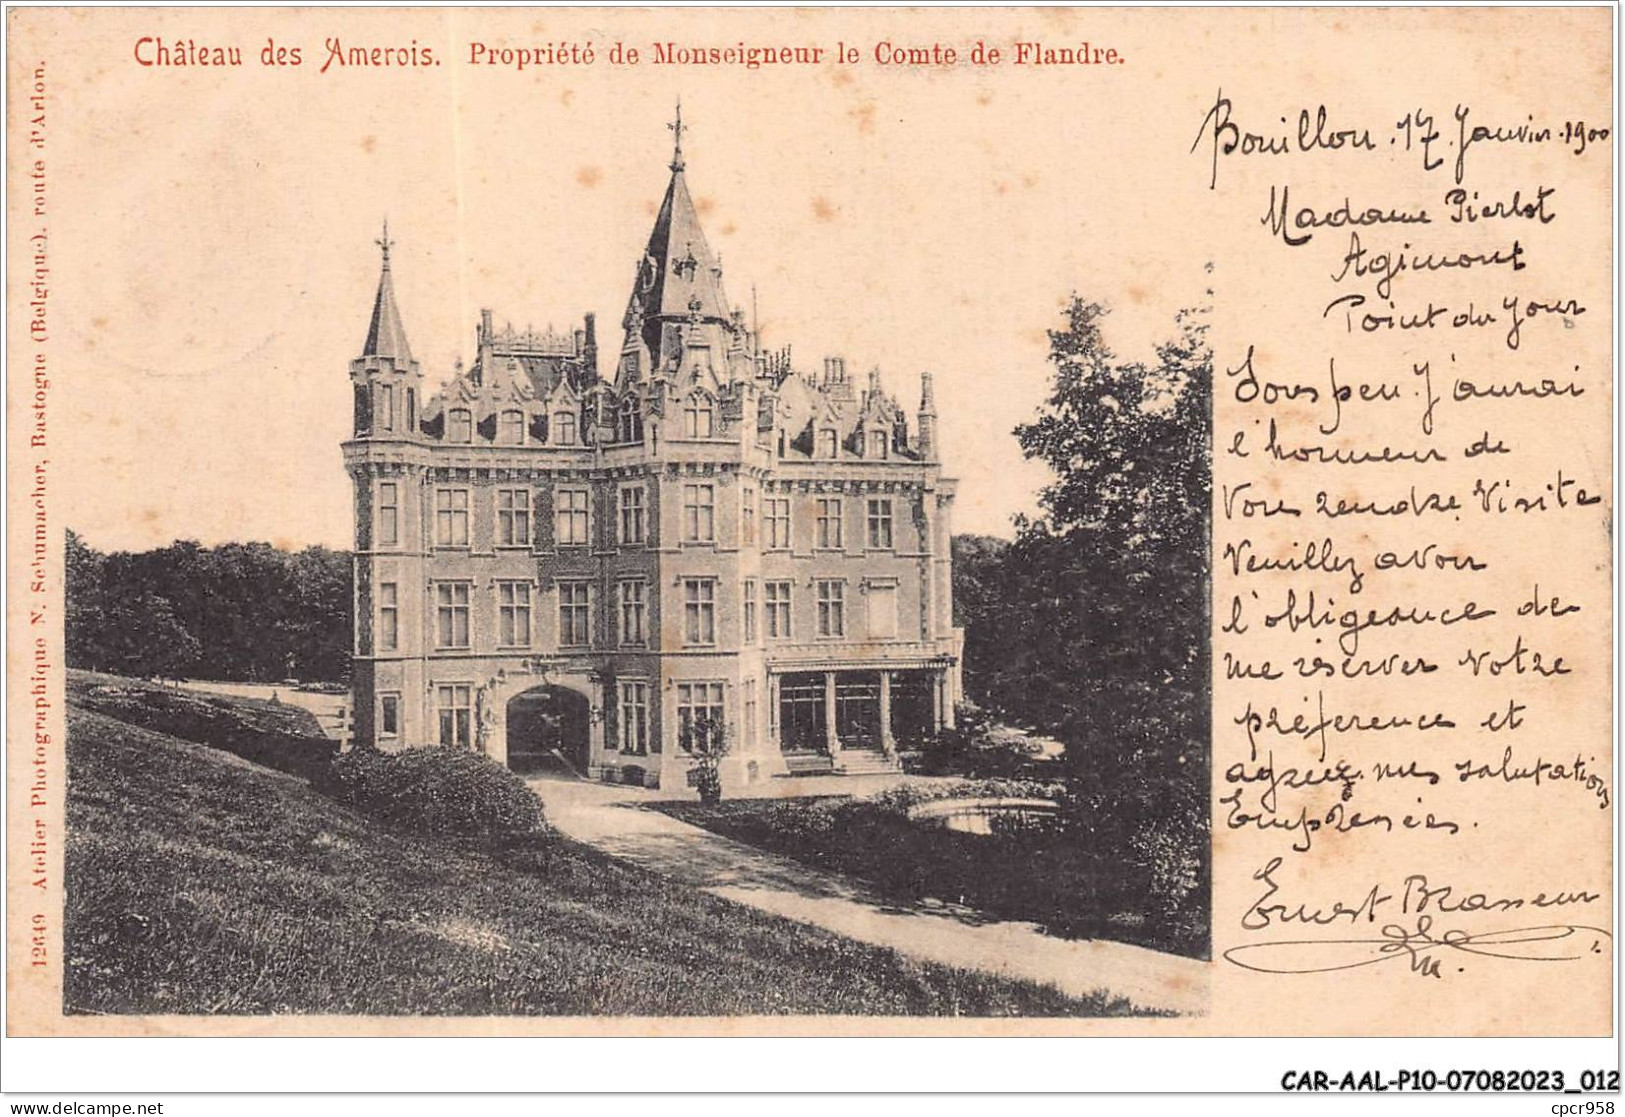 Château des Amerois. Propriété de Monseigneur le Comte de Flandre.
12649 Atelier Photographique N. Schumacher, Bastogne (Belgique), route d'Arlon.
Bouillon. 17. Janvier. 1900
Madame Pierlot
Agimont
Point du Jour
Sous peu J'aurai
l'honneur de
Vous rendre Visite
Veuillez avoir
l'obligeance de
me réserver votre
préférence et
agréez mes salutations
Empressées.
Ernest Brasseur
CAR-AAL-P10-07082023_012
www.delcampe.net
cpcr958